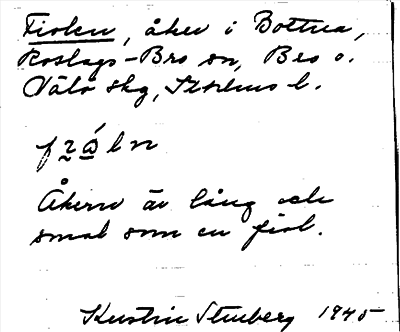 Fiolen, åker i Bottna,
Roslags-Bro sn, Bro o.
Väto skg, Sthlms l.
Åkern är lång och
smal som en fiol.
Kerstin Stenberg 1945